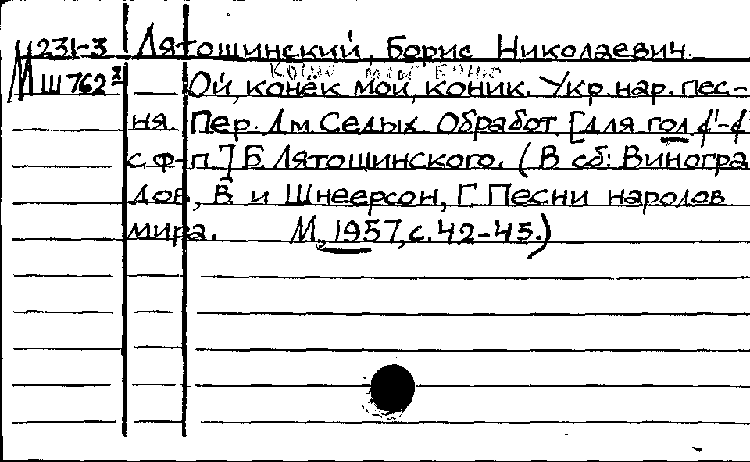 М231-3 Лятошинский, Борис Николаевич.
МШ762 Ой, конек мой, коник. Укр. нар. пес-
ня. Пер. Дм. Седых. Обработ. [для гол.
с ф-п.] Б. Лятошинского. (В сб: Виногра
дов, В. и Шнеерсон, Г. Песни народов
мира. М., 1957, с. 42-45.)